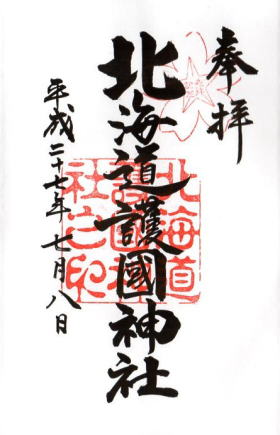 奉拝
北海道護國神社
平成二十七年七月八日
北海道護國神社之印